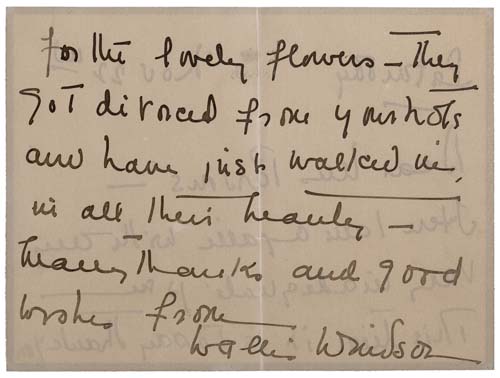 for the lovely flowers — They
got divorced from your hats
and have just walked in,
in all their beauty —
many thanks and good
wishes from
Wallis Windsor